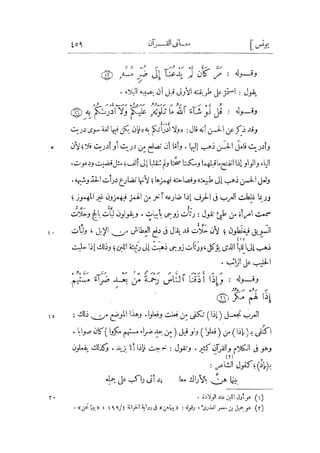 يونس ]
معانى القرآن
٤٥٩
وقوله : مَرَّ كَأَن لَّمْ يَدْعُنَا إِلَى ضُرٍّ مَّسَّهُ ⑫
يقول : استمرّ على طريقته الأولى قبل أن يصيبه البلاء .
وقوله : قُل لَّوْ شَاءَ اللَّهُ مَا تَلَوْتُهُ عَلَيْكُمْ وَلَا أَدْرَاكُم بِهِ ⑯
وقد ذكر عن الحسن أنه قال : «ولا أدرأتكم به» فإن يكن فيها لغة سوى دريت
وأدريت فلعلّ الحسن ذهب إليها . وأمّا أن تصلح من دريت أو أدريت فلا؛ لأن
الياء والواو إذا انفتح ما قبلهما وسكنتا صحّتا ولم تنقلبا إلى ألف؛ مثل قضيت ودعوت.
ولعل الحسن ذهب إلى طبيعته وفصاحته فهمزها؛ لأنها تضارع درأت الحدّ وشبهه .
وربما غلطت العرب فى الحرف إذا ضارعه آخر من الهمز فيهمزون غير المهموز ؛
سمعت امرأة من طيئ تقول : رثأت زوجى بأبيات. ويقولون لبّأت بالحج وحلّأت
السويق فيغلطون ؛ لأن حلّأت قد يقال فى دفع العطاش من الإبل ، ولبّأت
ذهب إلى اللبأ الذى يؤكل، ورثأت زوجى ذهبت إلى رثيئة اللبن؛ وذلك إذا حلبت
الحليب على الرائب .
وقوله : وَإِذَا أَذَقْنَا النَّاسَ رَحْمَةً مِّن بَعْدِ ضَرَّاءَ مَسَّتْهُمْ
إِذَا لَهُم مَّكْرٌ ㉑
العرب تجعل (إذا) تكفى من فعلت وفعلوا . وهذا الموضع من ذلك :
اكتفى بـ(إذا) من (فعلوا) ولو قيل (من بعد ضراء مستهم مكروا) كان صوابا .
وهو فى الكلام والقرآن كثير . وتقول : خرجت فإذا أنا بزيد . وكذلك يفعلون
بـ(إذ)؛ كقول الشاعر :
بينما هنّ بالأراك معا إذ أتى راكب على جمله
(١) هو أول اللبن عند الولادة .
(٢) هو جميل بن معمر العذرىّ . وقوله : «بينما هن» فى رواية الخزانة ٤/١٩٩ : «بينما نحن» .
٥
١٠
١٥
٢٠